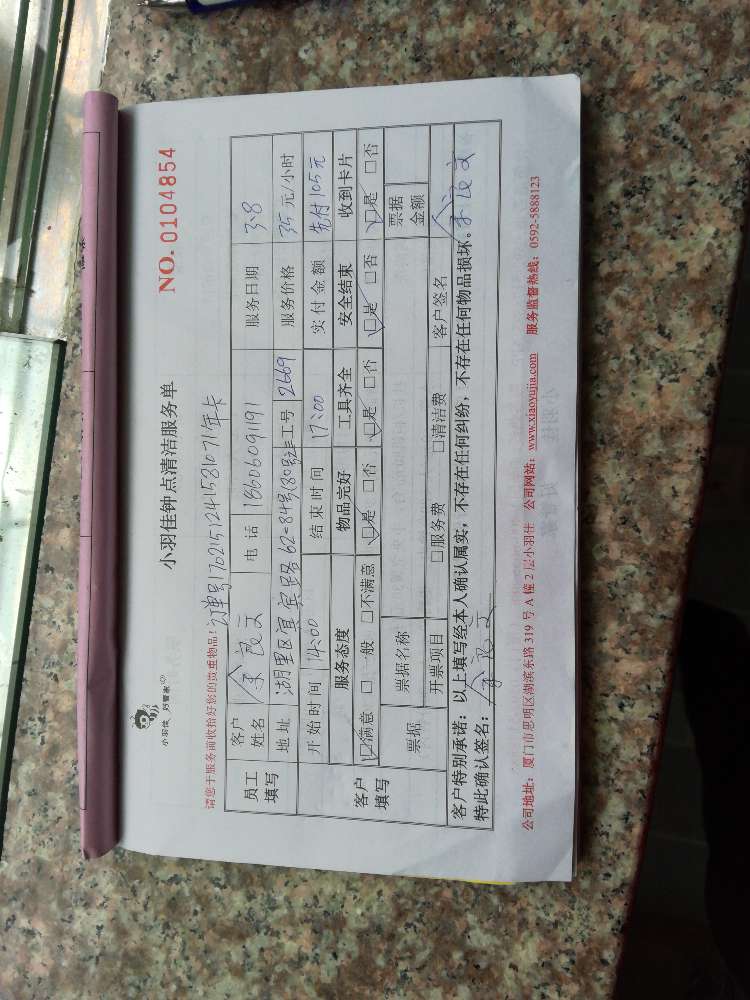 小羽佳 好管家
小羽佳钟点清洁服务单
NO. 0104854
请您于服务前收拾好您的贵重物品! 订单号170215124158107 1年卡
员工填写 客户姓名 余良文 电话 18606091191 服务日期 3.8
地址 湖里区宜宾路62-84号 工号 2669 服务价格 35元/小时
开始时间 14:00 结束时间 17:00 实付金额 先付105元
客户填写 服务态度 物品完好 工具齐全 安全结束 收到卡片
☑满意 □一般 □不满意 ☑是 □否 ☑是 □否 ☑是 □否 ☑是 □否
票据 票据名称 票据金额
开票项目 □服务费 □清洁费 客户签名 余良文
客户特别承诺：以上填写经本人确认属实，不存在任何纠纷，不存在任何物品损坏。
特此确认签名： 余良文
公司地址：厦门市思明区湖滨东路 319 号 A 幢 2 层小羽佳 公司网站：www.xiaoyujia.com 服务监督热线：0592-5888123